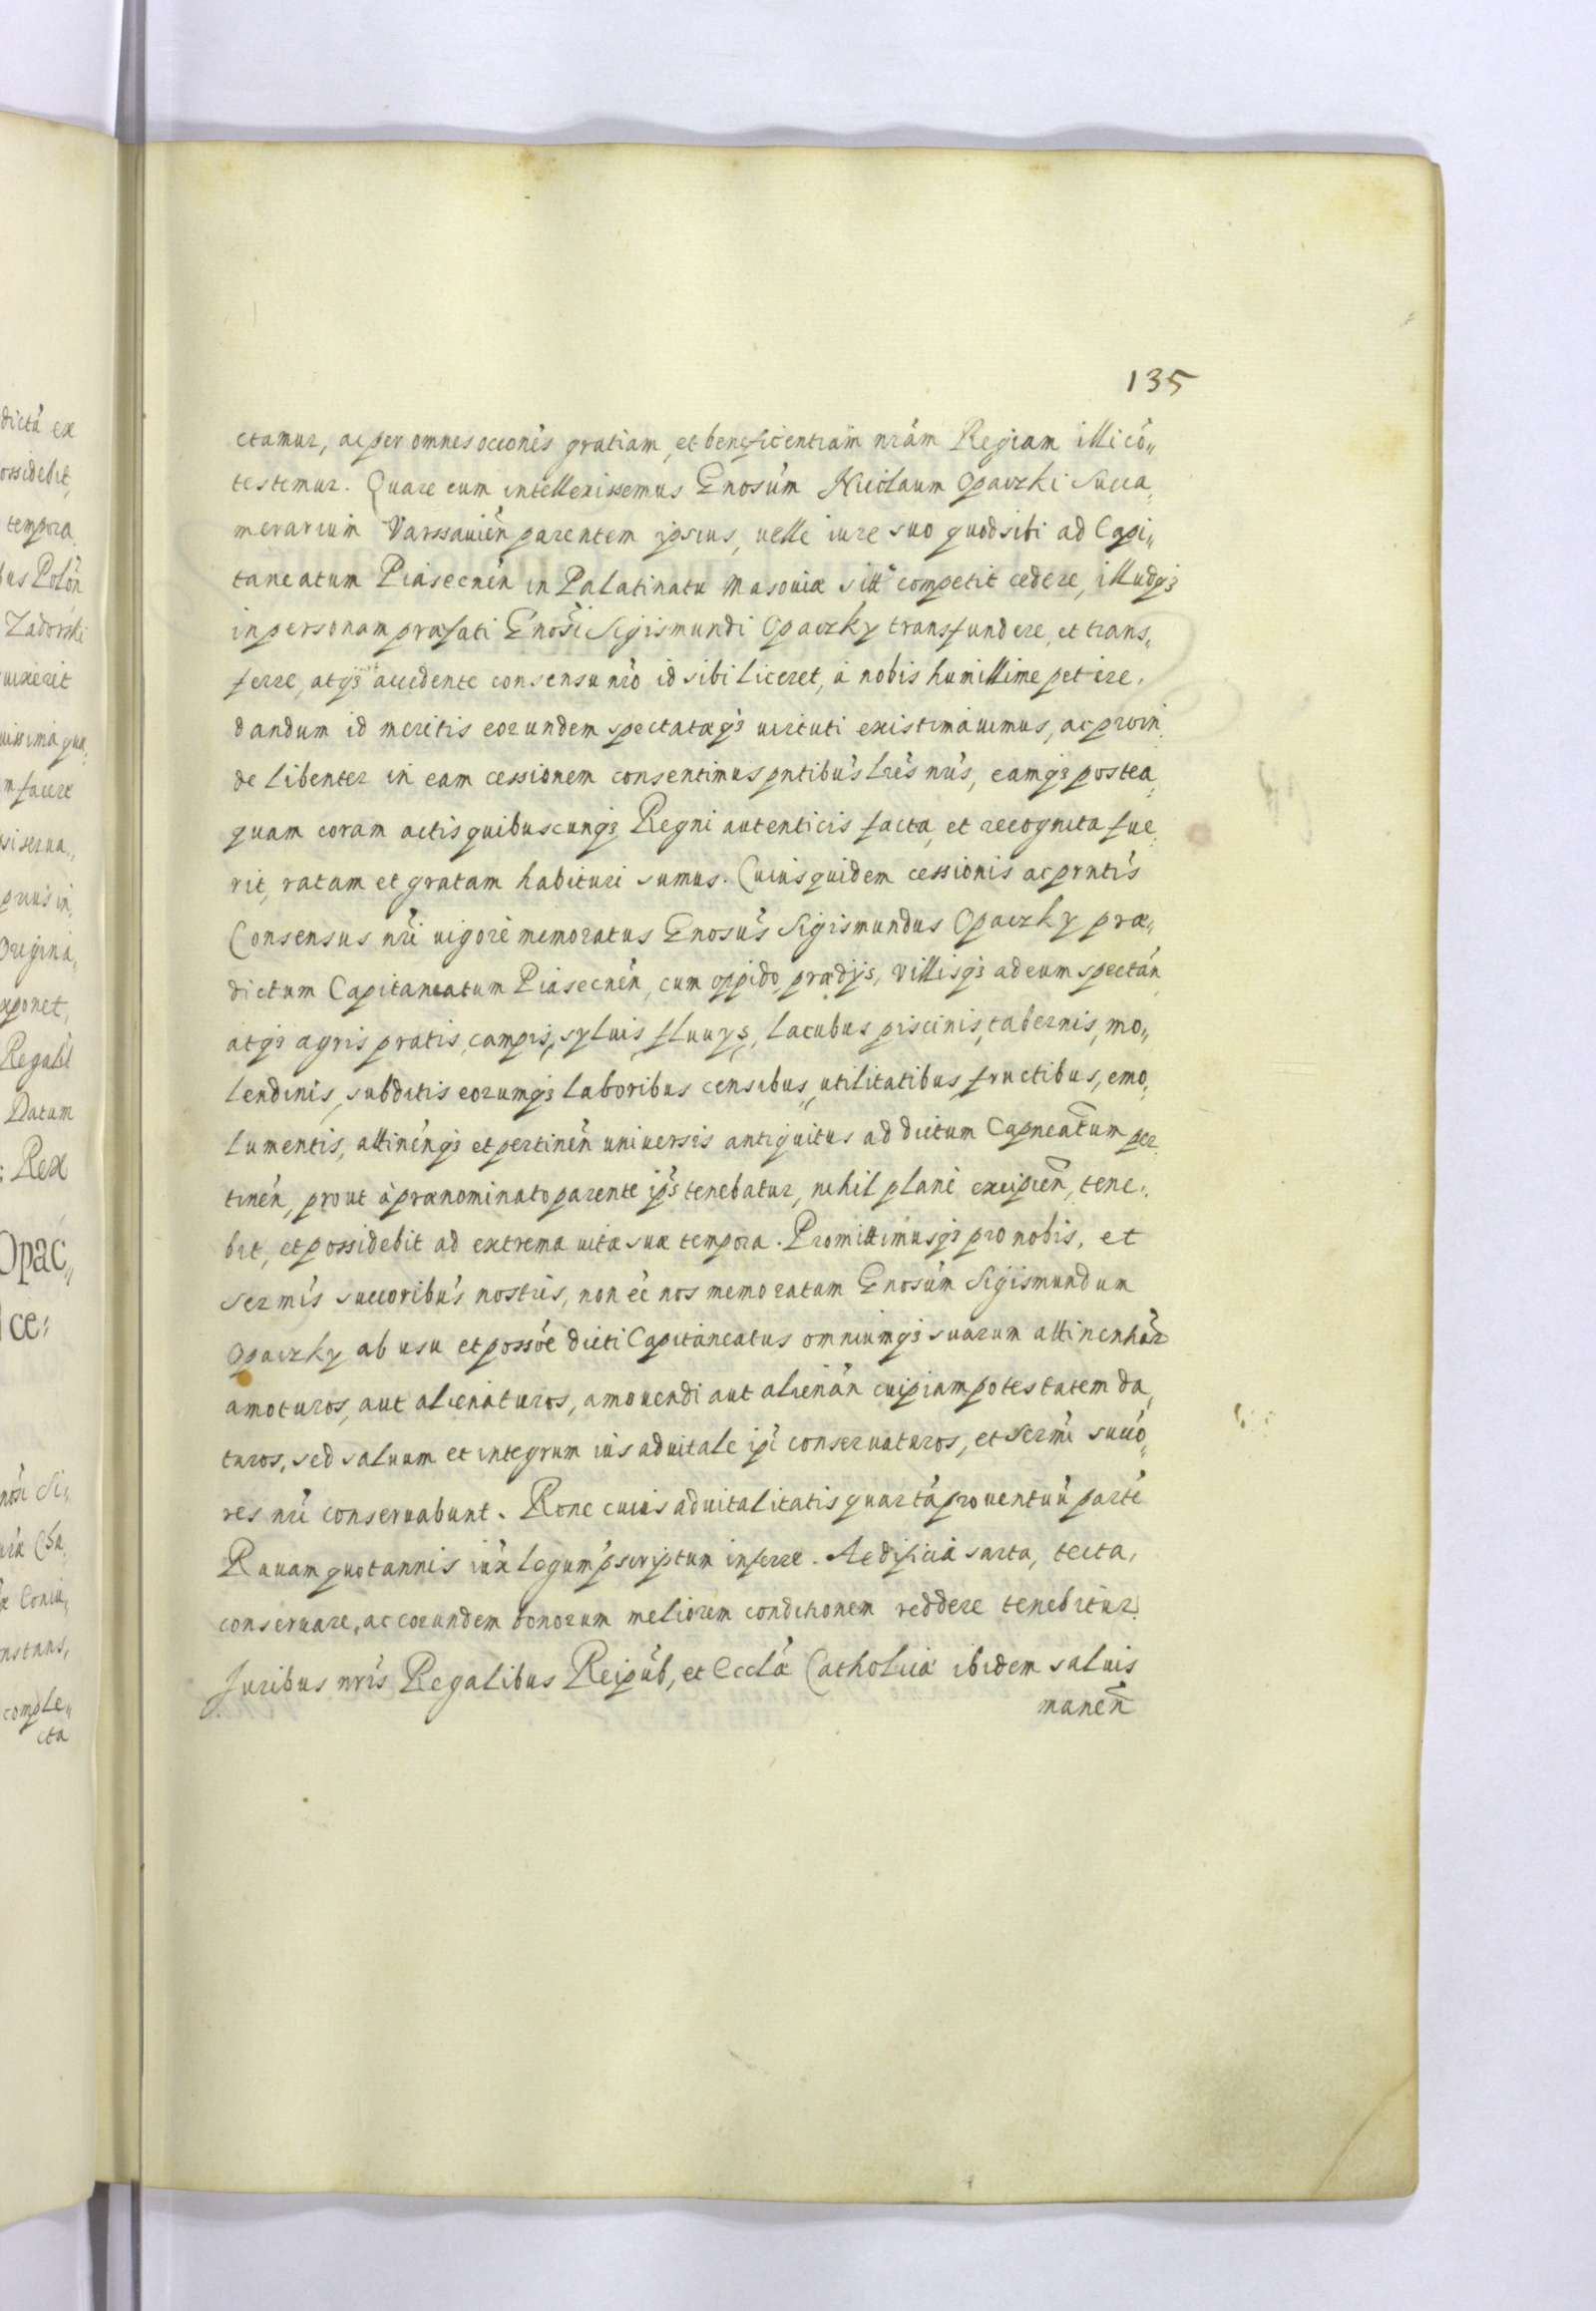 135
ctamur, ac per omnes occónes gratiam, et beneficentiam nrám Regiam illi có„
testemur. Quare cum intellexissemus Gnosúm Nicolaum Opaczki Succa„
merarium Varssauién parentem ipsius, uelle iure suo quod sibi ad Capi„
taneatum Piasecnén in Palatinatu Masouiæ sitt competit cedere, illudq3
in personam præfati Gnosi Sigismundi Opaczky transfundere, et trans„
ferre, atq3 accedente consensu nró id sibi liceret, á nobis humillime petiere.
dandum id meritis eorundem spectatæq3 uirtuti existimauimus, ac proin„
de libenter in eam cessionem consentimus pntibús lrés nrís, eamq3 postea„
quam coram actis quibuscunq3 Regni autenticis facta, et recognita fue„
rit, ratam et gratam habituri sumus. Cuius quidem cessionis ac prntís
Consensus nrí uigore memoratus Gnosús Sigismundus Opaczky præ„
dictum Capitaneatum Piasecnén, cum oppido, prædijs, Villisq3 ad eum spectán
atq3 agris pratis, campis, syluis, fluuys, lacubus piscinis, tabernis, mo„
lendinis, subditis eorumq3 laboribus censibus, utilitatibus fructibus, emo„
lumentis, attinénq3 et pertinén uniuersis antiquitus ad dictum Capneatum per„
tinén, prout á prænominato parente ips tenebatur, nihil plané excipién, tene„
bit, et possidebit ad extrema uitæ suæ tempora. Promittimusq3 pro nobis, et
sermís succoribús nostris, non eé nos memoratum Gnosúm Sigismundum
Opaczky ab usu et possóe dicti Capitaneatus omniumq3 suarum attinentiár
amoturos, aut alienaturos, amouendi aut alienán cuipiam potestatem da„
turos, sed saluum et integrum iús aduitale ipi conseruaturos, et sermí succó„
res nrí conseruabunt. Rone cuius aduitalitatis quartá prouentuú parté
Rauam quotannis iúx legum pscriptum inferre. Aedificia sarta, tecta,
conseruare, ac eorundem bonorum meliorem conditionem reddere tenebitur.
Juribus nris Regalibus Reipúb, et Ecclæ Catholicæ ibidem saluis
manén